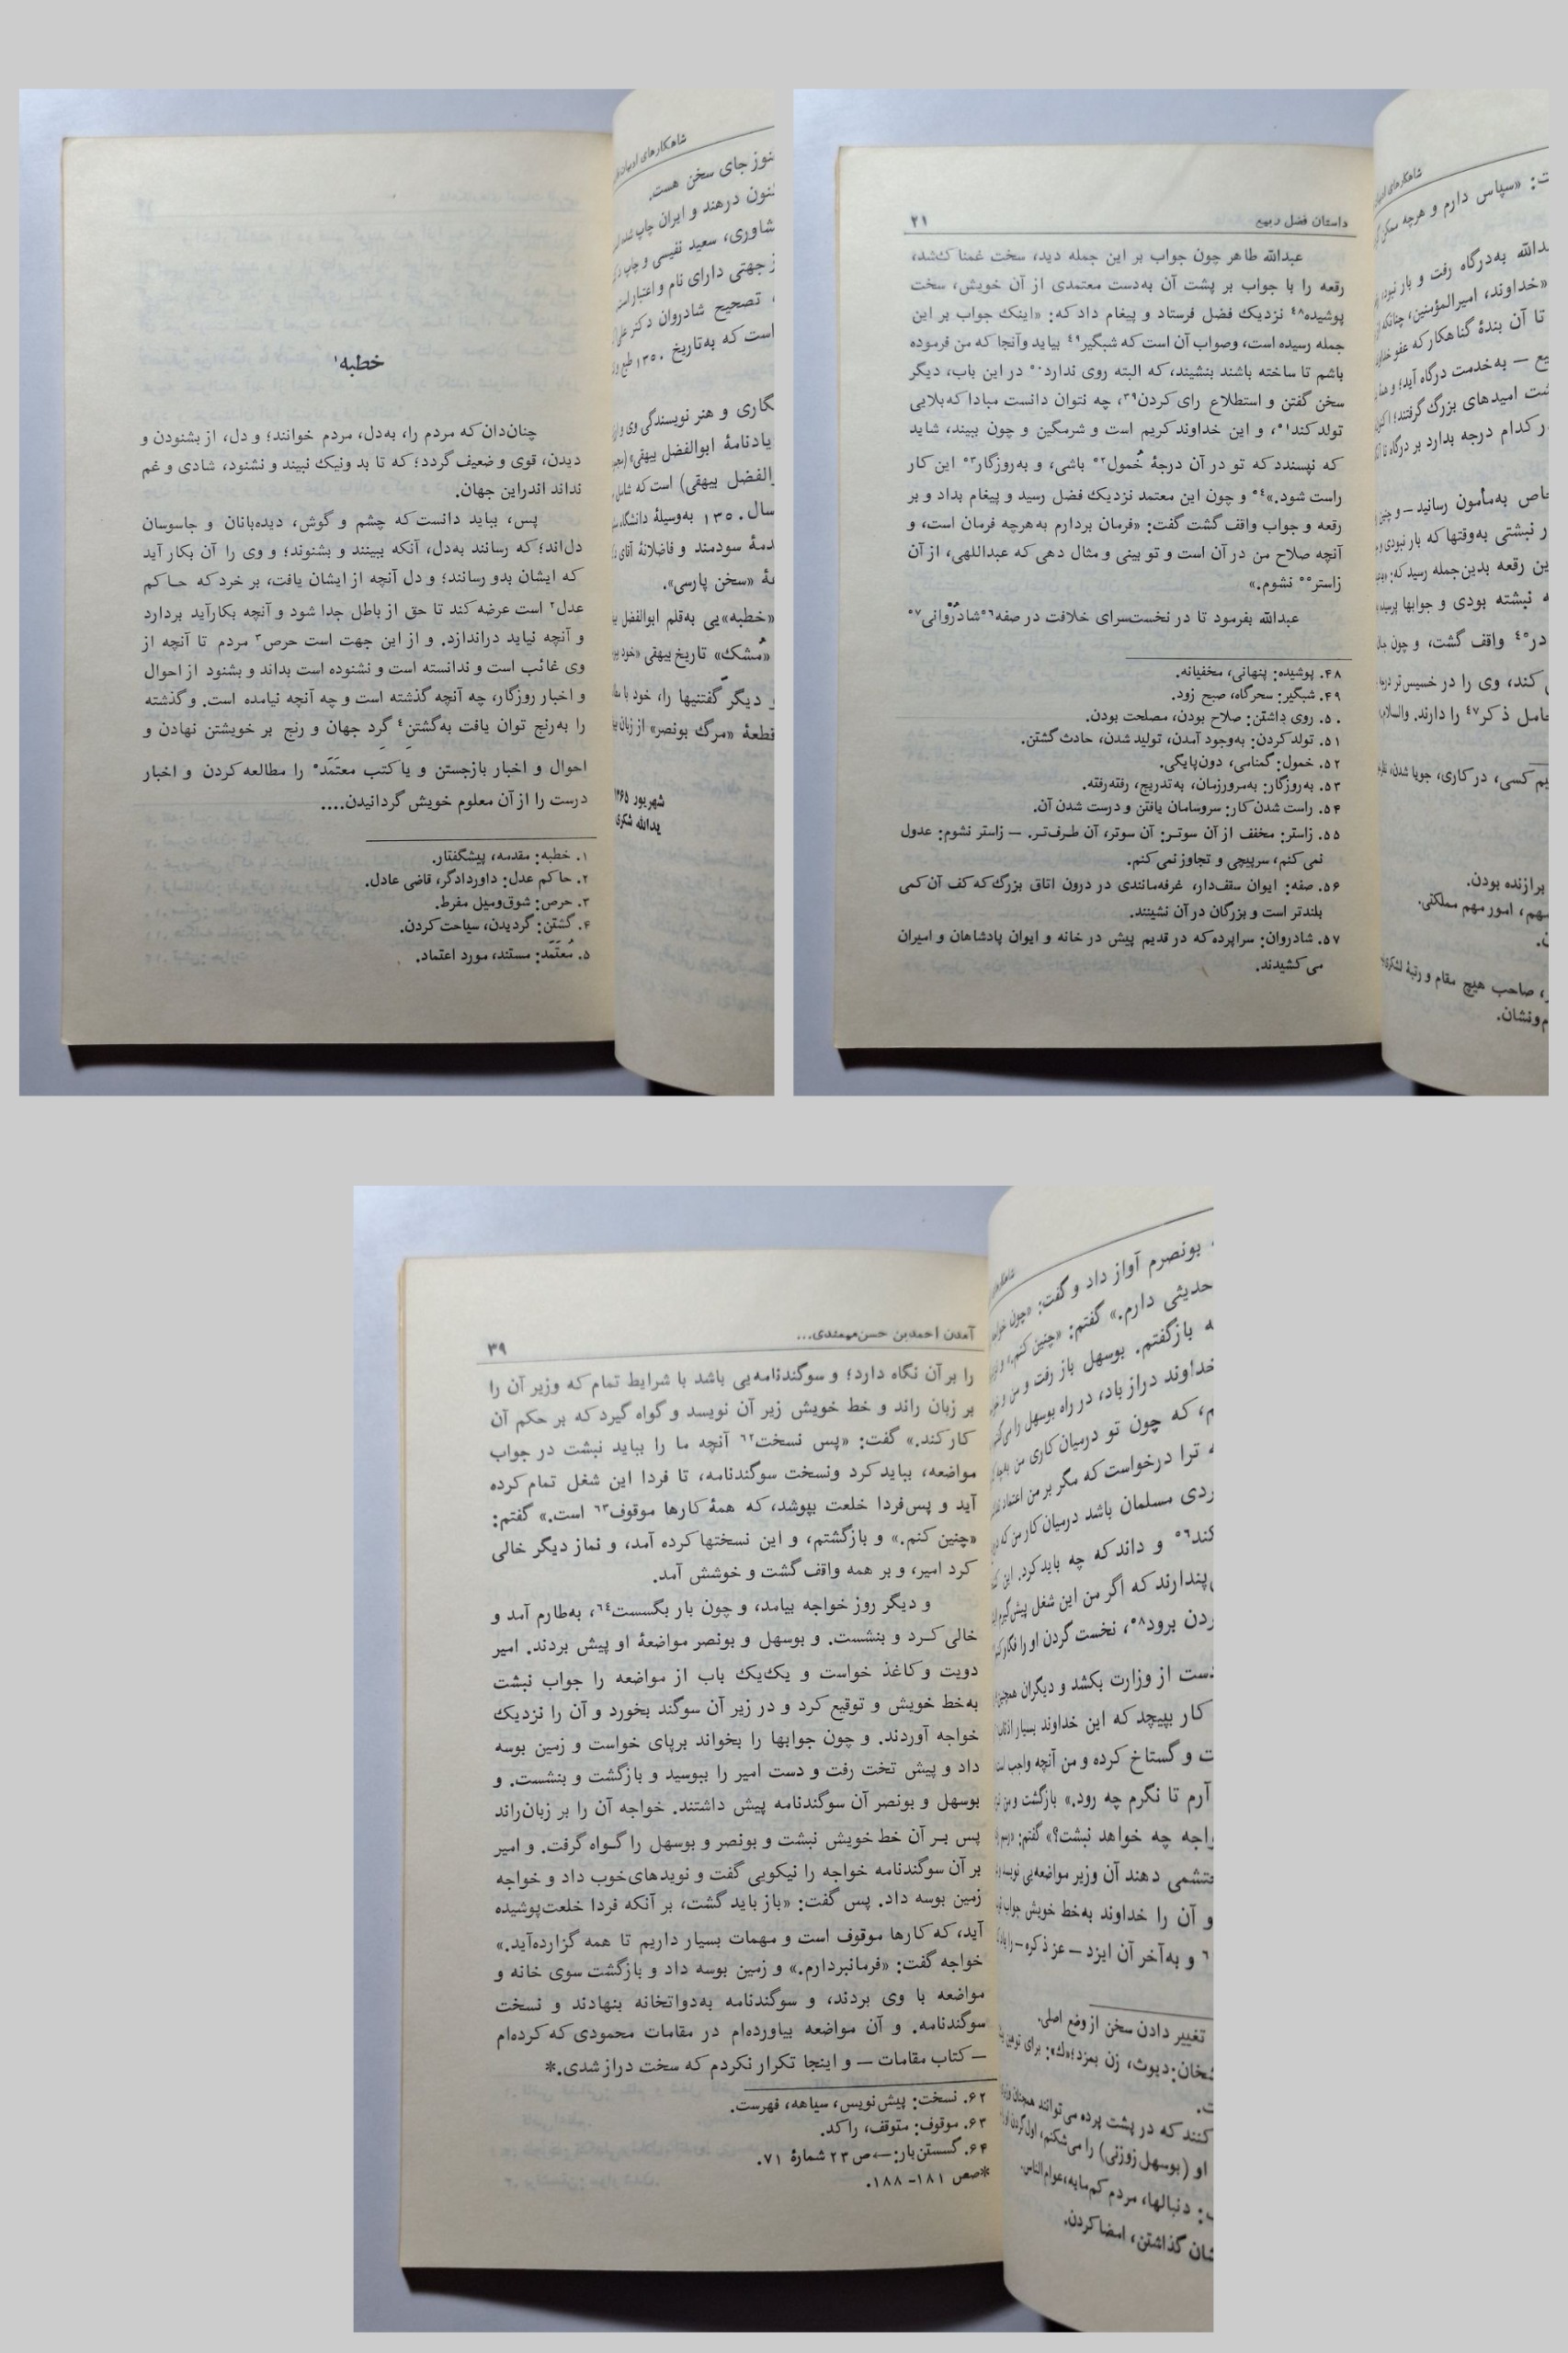 خطبه۱
چنان‌دان که مردم را، به‌دل، مردم خوانند؛ و دل، از بشنودن و
دیدن، قوی و ضعیف گردد؛ که تا بد ونیک نبیند و نشنود، شادی و غم
نداند اندراین جهان.
پس، بباید دانست که چشم و گوش، دیده‌بانان و جاسوسان
دل‌اند؛ که رسانند به‌دل، آنکه ببینند و بشنوند؛ و وی را آن بکار آید
که ایشان بدو رسانند؛ و دل آنچه از ایشان یافت، بر خرد که حاکم
عدل۲ است عرضه کند تا حق از باطل جدا شود و آنچه بکارآید بردارد
و آنچه نیاید دراندازد. و از این جهت است حرص۳ مردم تا آنچه از
وی غائب است و ندانسته است و نشنوده است بداند و بشنود از احوال
و اخبار روزگار، چه آنچه گذشته است و چه آنچه نیامده است. و گذشته
را به‌رنج توان یافت به‌گشتنِ۴ گرد جهان و رنج بر خویشتن نهادن و
احوال و اخبار بازجستن و یا کتب معتَمَد۵ را مطالعه کردن و اخبار
درست را از آن معلوم خویش گردانیدن....
۱. خطبه: مقدمه، پیشگفتار.
۲. حاکم عدل: داوردادگر، قاضی عادل.
۳. حرص: شوق‌ومیل مفرط.
۴. گشتن: گردیدن، سیاحت کردن.
۵. مُعتَمَد: مستند، مورد اعتماد.
نوز جای سخن هست.
نون درهند و ایران چاپ شده
شاوری، سعید نفیسی و چاپ
ز جهتی دارای نام و اعتبار است
، تصحیح شادروان دکتر علی
است که به‌تاریخ ۱۳۵۰ طبع
گاری و هنر نویسندگی وی و
یادنامهٔ ابوالفضل بیهقی»
الفضل بیهقی) است که شامل
سال ۱۳۵۰ به‌وسیلهٔ دانشگاه
دمهٔ سودمند و فاضلانهٔ آقای
عهٔ «سخن پارسی».
«خطبه»یی به‌قلم ابوالفضل
«مُشک» تاریخ بیهقی «خود
و دیگر گفتنیها را، خود با
قطعهٔ «مرگ بونصر» از زبان
شهریور ۱۳۶۵
یدالله شکری
داستان فضل ربیع ۲۱
عبدالله طاهر چون جواب بر این جمله دید، سخت غمناک شد،
رقعه را با جواب بر پشت آن به‌دست معتمدی از آن خویش، سخت
پوشیده۴۸ نزدیک فضل فرستاد و پیغام داد که: «اینک جواب بر این
جمله رسیده است، وصواب آن است که شبگیر۴۹ بیاید وآنجا که من فرموده
باشم تا ساخته باشند بنشیند، که البته روی ندارد۵۰ در این باب، دیگر
سخن گفتن و استطلاع رای کردن۳۹، چه نتوان دانست مبادا که بلایی
تولد کند۵۱، و این خداوند کریم است و شرمگین و چون ببیند، شاید
که نپسندد که تو در آن درجهٔ خُمول۵۲ باشی، و به‌روزگار۵۳ این کار
راست شود.»۵۴ و چون این معتمد نزدیک فضل رسید و پیغام بداد و بر
رقعه و جواب واقف گشت گفت: «فرمان بردارم به‌هرچه فرمان است، و
آنچه صلاح من در آن است و تو بینی و مثال دهی که عبداللهی، از آن
زاستر۵۵ نشوم.»
عبدالله بفرمود تا در نخست‌سرای خلافت در صفه۵۶ شادُرْوانی۵۷
۴۸. پوشیده: پنهانی، مخفیانه.
۴۹. شبگیر: سحرگاه، صبح زود.
۵۰. روی داشتن: صلاح بودن، مصلحت بودن.
۵۱. تولد کردن: به‌وجود آمدن، تولید شدن، حادث گشتن.
۵۲. خمول: گمنامی، دون‌پایگی.
۵۳. به‌روزگار: به‌مرورزمان، به‌تدریج، رفته‌رفته.
۵۴. راست شدن کار: سروسامان یافتن و درست شدن آن.
۵۵. زاستر: مخفف از آن سوتر: آن سوتر، آن طرف‌تر. — زاستر نشوم: عدول
نمی کنم، سرپیچی و تجاوز نمی کنم.
۵۶. صفه: ایوان سقف‌دار، غرفه‌مانندی در درون اتاق بزرگ که کف آن کمی
بلندتر است و بزرگان در آن نشینند.
۵۷. شادروان: سراپرده که در قدیم پیش در خانه و ایوان پادشاهان و امیران
می کشیدند.
ت: «سپاس دارم و هرچه ممکن
بدالله به‌درگاه رفت و بار نبود،
«خداوند، امیرالمؤمنین، چنانکه
تا آن بندهٔ گناهکار که عفو
یع — به‌خدمت درگاه آید؛ و
شت امیدهای بزرگ گرفتند؛
در کدام درجه بدارد بر درگاه تا
خاص به‌مأمون رسانید — و چنین
ر نبشتی به‌وقتها که بار نبودی و
ین رقعه بدین‌جمله رسید که:
ه نبشته بودی و جوابها
واقف گشت، و چون
ی کند، وی را در خسیس‌تر
حامل ذکر۴۷ را دارند. والسلام.
یم کسی، در کاری، جویا شدن،
برازنده بودن.
سهم، امور مهم مملکتی.
ر، صاحب هیچ مقام و رتبهٔ لشکری
م‌ونشان.
آمدن احمدبن حسن‌میمندی... ۳۹
را بر آن نگاه دارد؛ و سوگندنامه‌یی باشد با شرایط تمام که وزیر آن را
بر زبان راند و خط خویش زیر آن نویسد و گواه گیرد که بر حکم آن
کار کند.» گفت: «پس نسخت۶۲ آنچه ما را بباید نبشت در جواب
مواضعه، بباید کرد ونسخت سوگندنامه، تا فردا این شغل تمام کرده
آید و پس‌فردا خلعت بپوشد، که همهٔ کارها موقوف۶۳ است.» گفتم:
«چنین کنم.» و بازگشتم، و این نسختها کرده آمد، و نماز دیگر خالی
کرد امیر، و بر همه واقف گشت و خوشش آمد.
و دیگر روز خواجه بیامد، و چون بار بگسست۶۴، به‌طارم آمد و
خالی کرد و بنشست. و بوسهل و بونصر مواضعهٔ او پیش بردند. امیر
دویت و کاغذ خواست و یک‌یک باب از مواضعه را جواب نبشت
به‌خط خویش و توقیع کرد و در زیر آن سوگند بخورد و آن را نزدیک
خواجه آوردند. و چون جوابها را بخواند برپای خواست و زمین بوسه
داد و پیش تخت رفت و دست امیر را ببوسید و بازگشت و بنشست. و
بوسهل و بونصر آن سوگندنامه پیش داشتند. خواجه آن را بر زبان‌راند
پس بر آن خط خویش نبشت و بونصر و بوسهل را گواه گرفت. و امیر
بر آن سوگندنامه خواجه را نیکویی گفت و نویدهای‌خوب داد و خواجه
زمین بوسه داد. پس گفت: «باز باید گشت، بر آنکه فردا خلعت‌پوشیده
آید، که کارها موقوف است و مهمات بسیار داریم تا همه گزارده‌آید.»
خواجه گفت: «فرمانبردارم.» و زمین بوسه داد و بازگشت سوی خانه و
مواضعه با وی بردند، و سوگندنامه به‌دواتخانه بنهادند و نسخت
سوگندنامه. و آن مواضعه بیاورده‌ام در مقامات محمودی که کرده‌ام
— کتاب مقامات — و اینجا تکرار نکردم که سخت دراز شدی.*
۶۲. نسخت: پیش‌نویس، سیاهه، فهرست.
۶۳. موقوف: متوقف، راکد.
۶۴. گسستن‌بار: ← ص ۲۳ شمارهٔ ۷۱.
*صص ۱۸۱- ۱۸۸.
بونصرم آواز داد و گفت: «چون
حدیثی دارم.» گفتم: «چنین کنم.»
ه بازگفتم. بوسهل باز رفت و من و
خداوند دراز باد، در راه بوسهل را
م، که چون تو درمیان کاری من
ه ترا درخواست که مگر بر من اعتماد
ردی مسلمان باشد درمیان کار من که
و داند که چه باید کرد. این
پندارند که اگر من این شغل پیش‌گیرم
ردن برود۵۸، نخست گردن او را فگار
دست از وزارت بکشد و دیگران
کار بپیچد که این خداوند بسیار
ت و گستاخ کرده و من آنچه واجب
آرم تا نگرم چه رود.» بازگشت و من
واجه چه خواهد نبشت؟» گفتم:
حتشمی دهند آن وزیر مواضعه‌یی نویسد
و آن را خداوند به‌خط خویش جواب
و به‌آخر آن ایزد — عز ذکره — را
تغییر دادن سخن از وضع اصلی.
شخان: دیوث، زن بمزد؛ «ک»: برای
کنند که در پشت پرده می‌توانند همچنان
او (بوسهل زوزنی) را می‌شکنم، اول گردن
: دنبالها، مردم کم‌مایه، عوام‌الناس.
شان گذاشتن، امضا کردن.